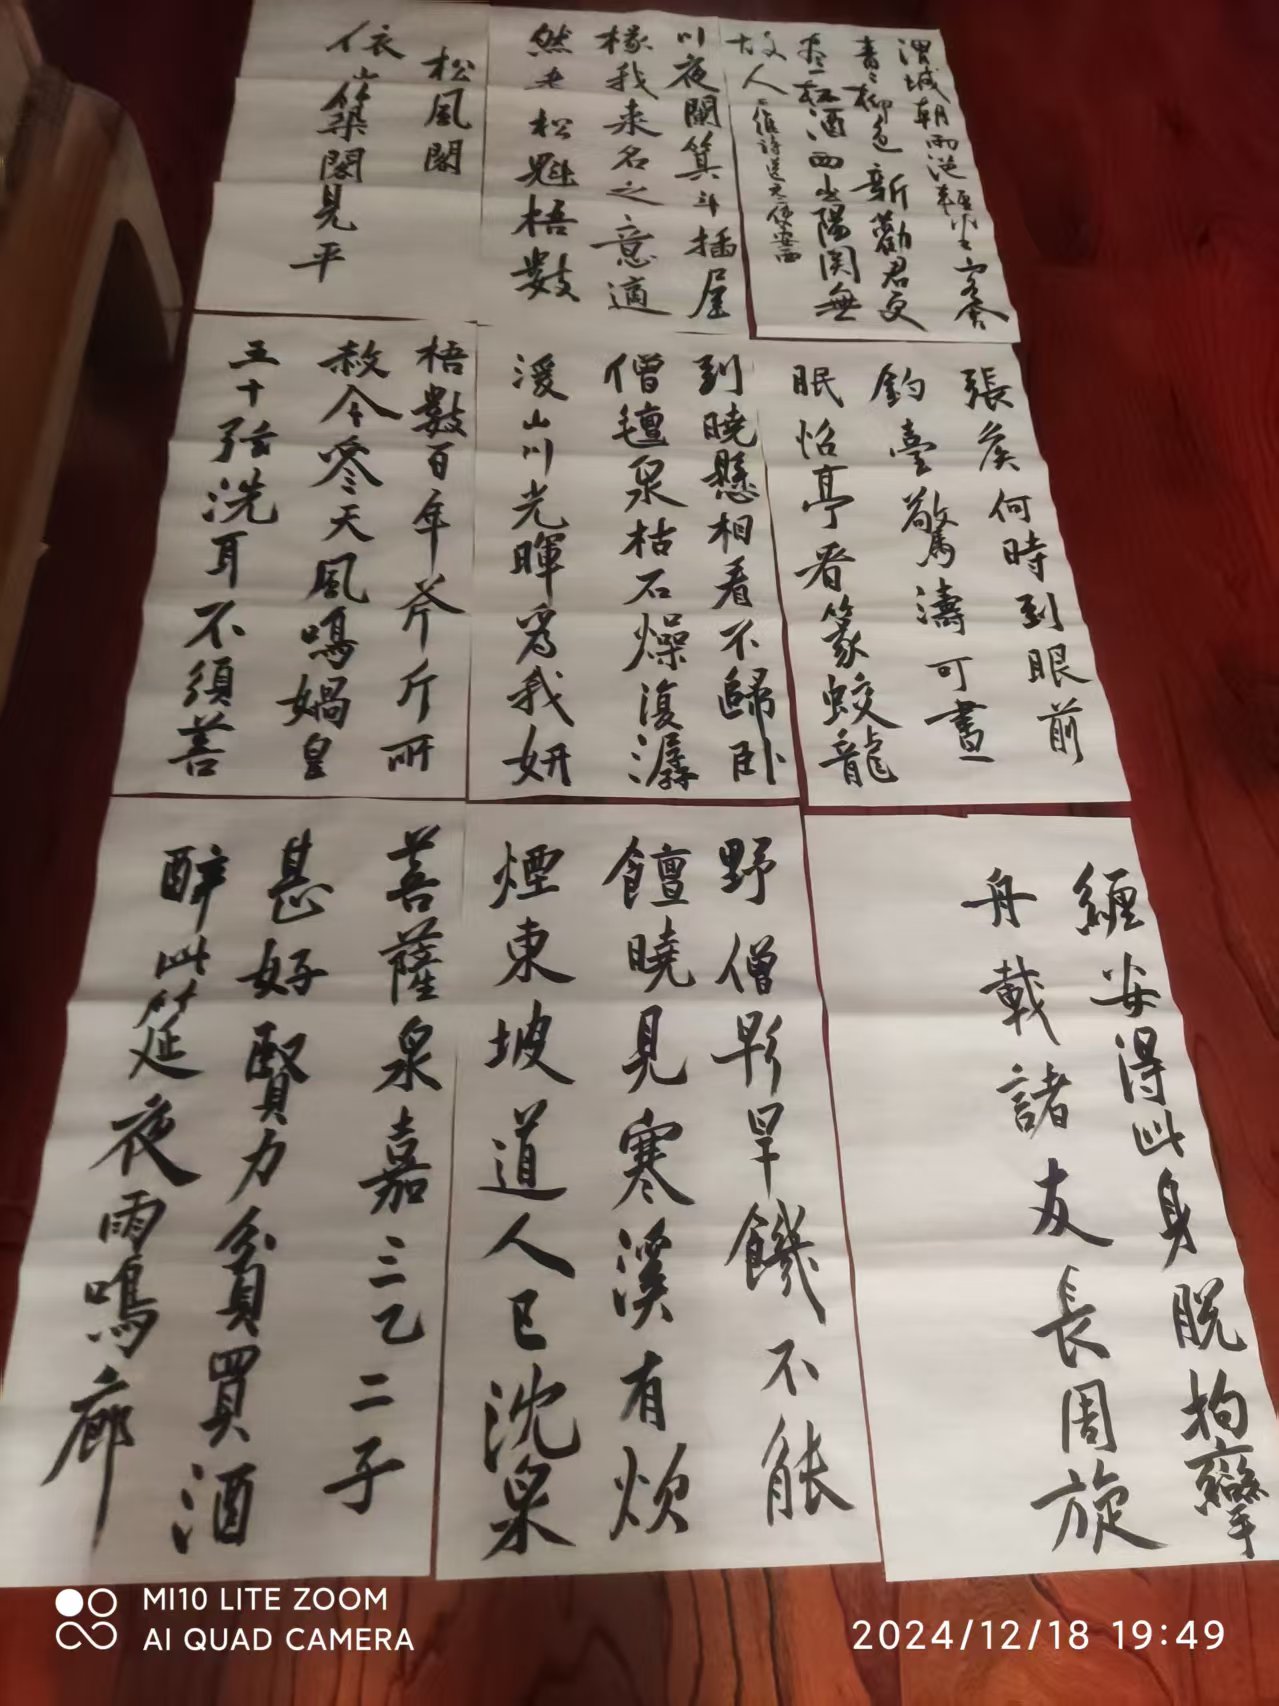 松風閣
依山築閣見平
川夜闌箕斗插屋
椽我來名之意適
然老松魁梧數
渭城朝雨浥輕塵客舍
青々柳色新勸君更
盡一杯酒西出陽関無
故人
維詩送元二使安西
梧數百年斧斤所
赦今參天風鳴媧皇
五十弦洗耳不須菩
菩薩泉嘉三乙二子
甚好賢力貧買酒
醉此筵夜雨鳴廊
到曉懸相看不歸臥
僧氈泉枯石燥復潺
湲山川光暉為我妍
野僧旱饑不能
饘曉見寒溪有炊
煙東坡道人已沈泉
張矦何時到眼前
釣臺驚濤可晝
眠怡亭看篆蛟龍
纏安得此身脫拘攣
舟載諸友長周旋
MI10 LITE ZOOM
AI QUAD CAMERA
2024/12/18 19:49